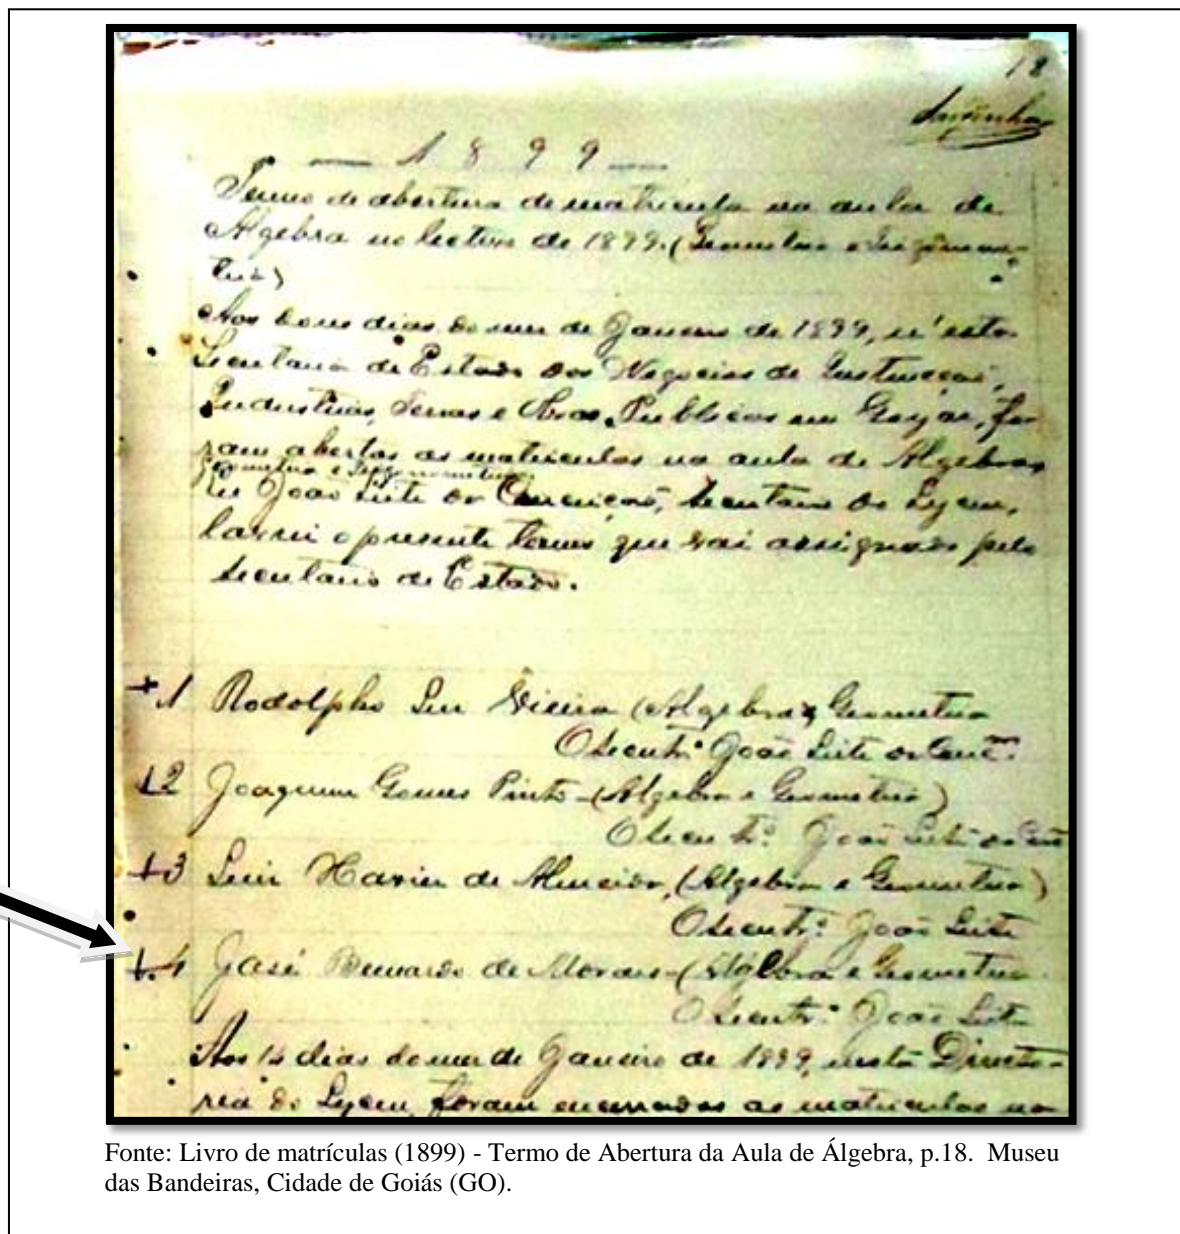 18
— 1899 —
Termo de abertura de matricula na aula de
Algebra no lectivo de 1899. (Geometria e Trigonome-
tria)
Aos dias do mez de Janeiro de 1899, n'esta
Secretaria de Estado dos Negocios de Instrucçaõ,
Industrias, Terras e Obras Publicas em Goyaz, fo-
ram abertas as matriculas na aula de Algebra,
Geometria e Trigonometria
Eu Joaõ Leite, Secretario do Lyceu,
lavrei o presente termo que vai assignado pelo
Secretario de Estado.
+1 Rodolpho Luz Vieira (Algebra e Geometria
O Secretr.º Joaõ Leite
+2 Joaquim Gomes Pinto - (Algebra e Geometria)
O Secretr.º Joaõ Leite
+3 Luiz Xavier de Almeida, (Algebra e Geometria)
O Secretr.º Joaõ Leite
+4 José Bernardo de Moraes - (Algebra e Geometria
O Secretr.º Joaõ Leite
Aos 14 dias do mez de Janeiro de 1899, nesta Directo-
ria do Lyceu, foram encerradas as matriculas na
Fonte: Livro de matrículas (1899) - Termo de Abertura da Aula de Álgebra, p.18. Museu
das Bandeiras, Cidade de Goiás (GO).